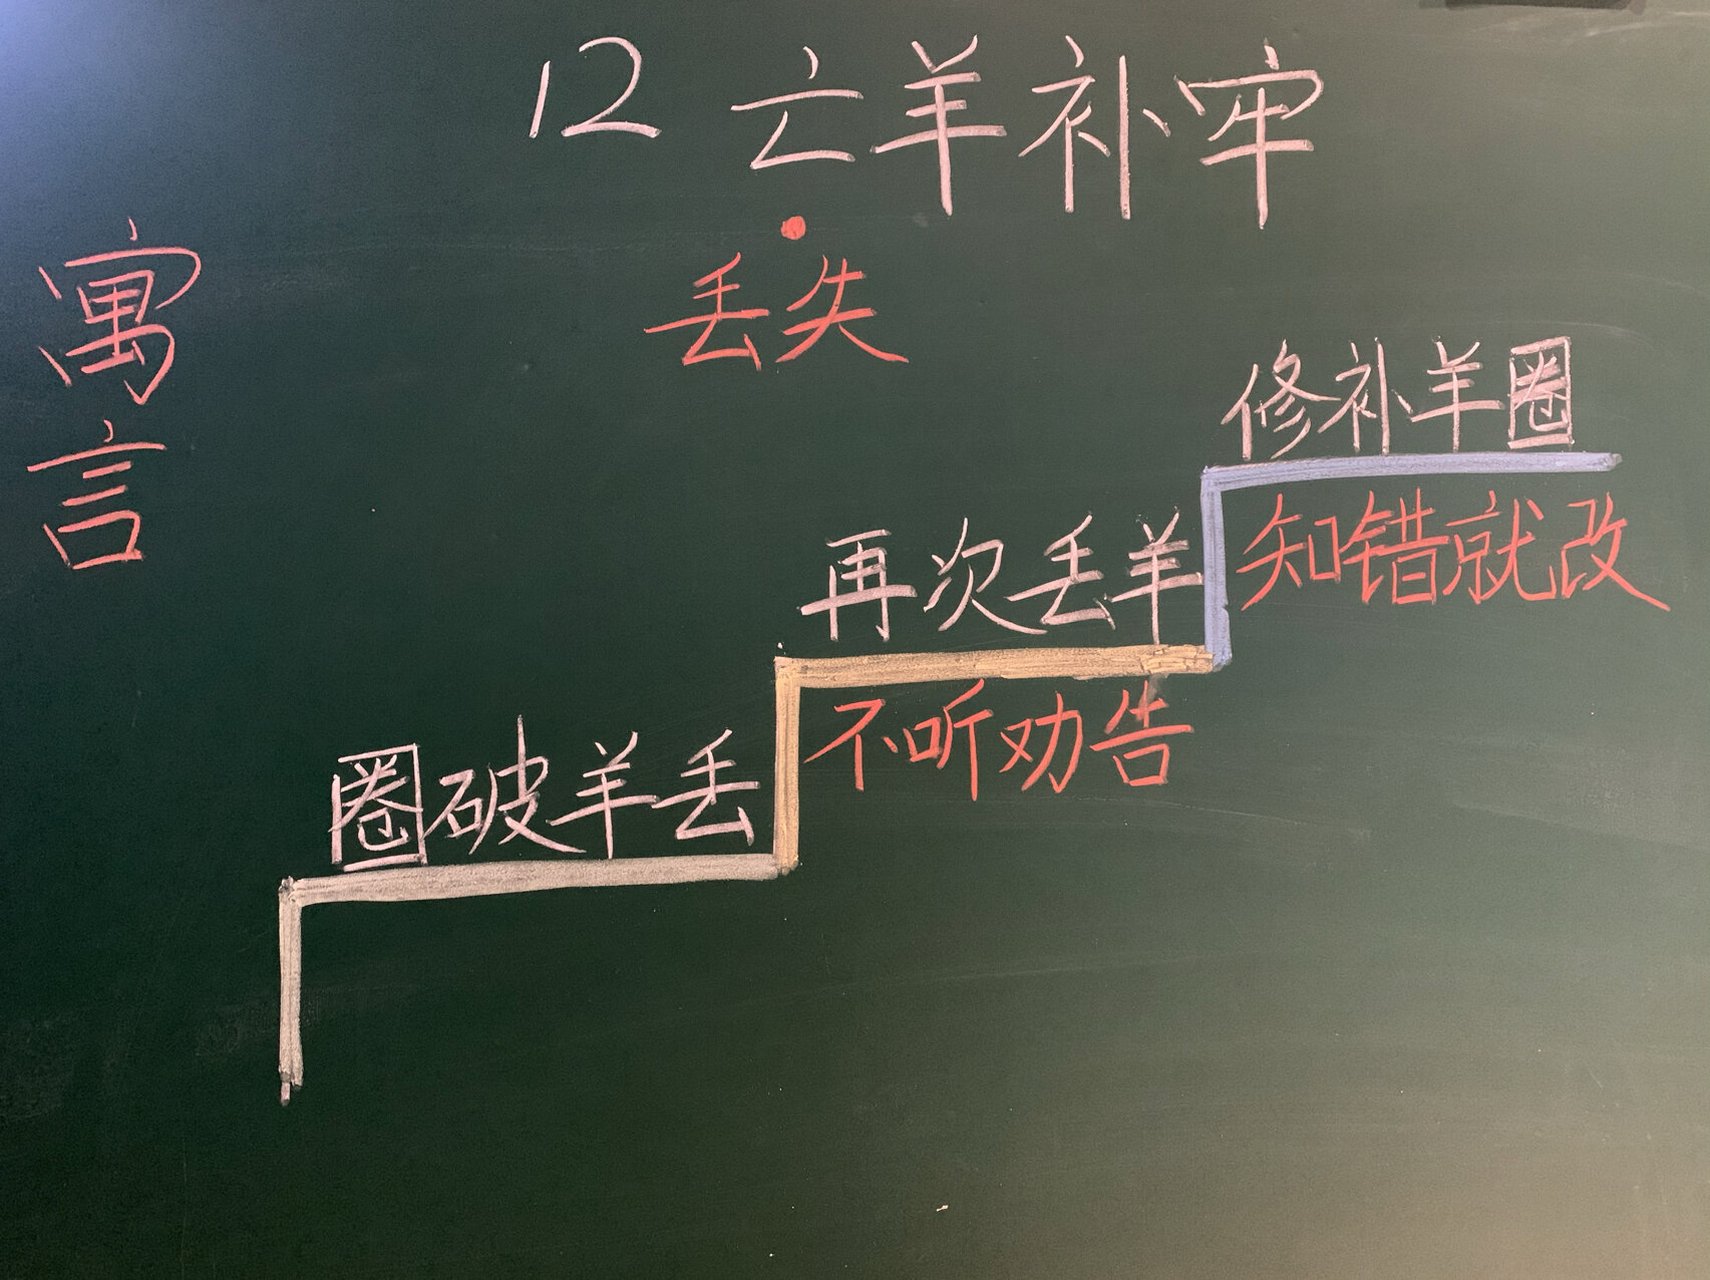 12 亡羊补牢
丢失
寓言
修补羊圈
知错就改
再次丢羊
不听劝告
圈破羊丢